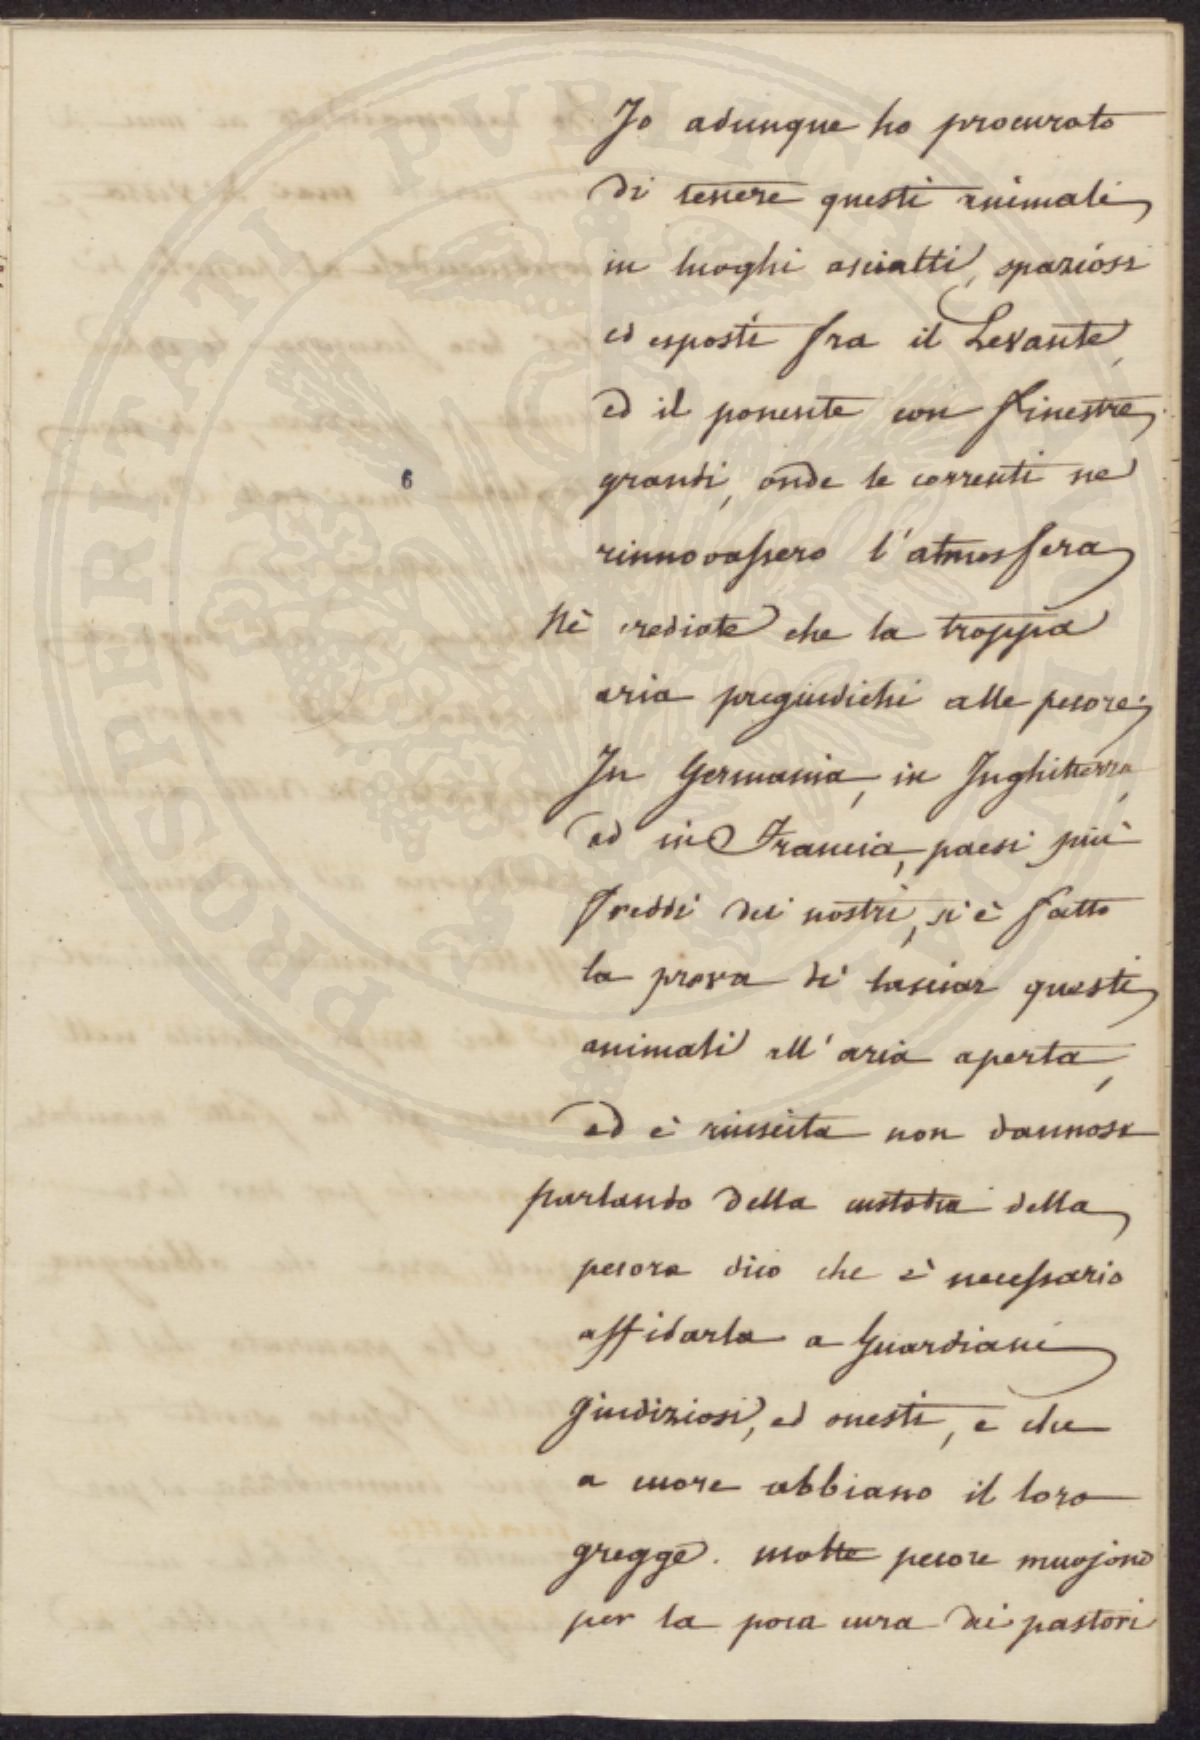 Io adunque ho procurato
di tenere questi animali
in luoghi asciatti, spaziosi
ed esposti fra il Levante,
ed il ponente con finestre
grandi, onde le correnti ne
6
rinnovassero l'atmosfera
Nè crediate che la troppa
aria pregiudichi alle pecore;
In Germania, in Inghilterra,
ed in Francia, paesi più
freddi dei nostri, si è fatto
la prova di lasciar questi
animali all'aria aperta,
ed è riuscita non dannosa
parlando della custodia della
pecora dico che è necessario
affidarla a Guardiani
giudiziosi, ed onesti, e che
a cuore abbiano il loro
gregge. molte pecore muojono
per la poca cura dei pastori
PROSPERITATI PUBLICAE